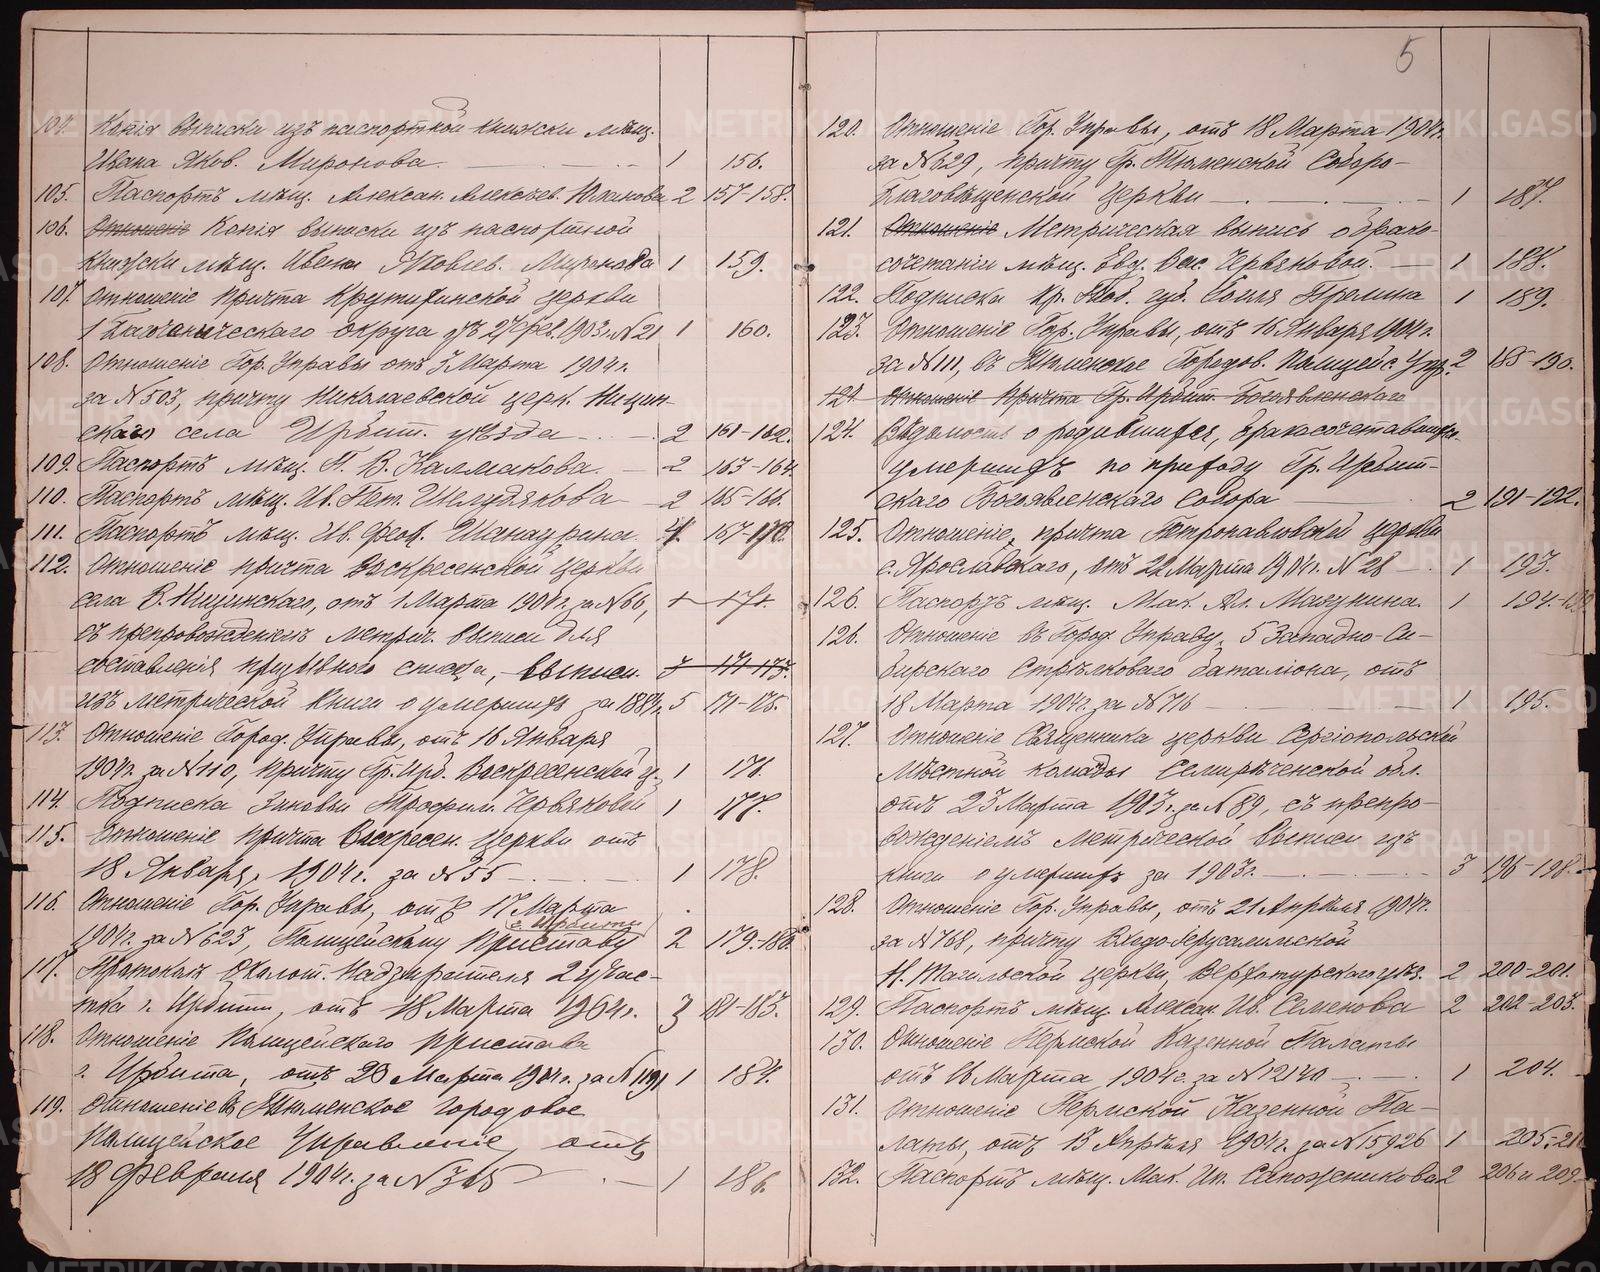 5
104. Копія выписки изъ паспортной книжки мѣщ.
Ивана Яков. Миронова. 1 156.
105. Паспортъ мѣщ. Алексан. Алексѣев. 2 157-158.
106. Отношеніе Копія выписки изъ паспортной
книжки мѣщ. Ивана Яковлев. Миронова 1 159.
107. Отношеніе причта Крутихинской церкви
1 Благочинническаго округа 27 Фев. 1903 г. № 21 1 160.
108. Отношеніе Гор. Управы отъ 3 Марта 1904 г.
за № 503, причту Николаевской церк. Ницин-
скаго села Ирбит. уѣзда 2 161-162.
109. Паспортъ мѣщ. П. В. Калмакова. 2 163-164.
110. Паспортъ мѣщ. Ив. Пет. Шелудякова 2 165-166.
111. Паспортъ мѣщ. Ив. Феоф. Шанаурина. 4. 167-170.
112. Отношеніе причта Воскресенской церкви
села В. Ницинскаго, отъ 1 Марта 1904 г. за № 66, 1 171.
съ препровожденіемъ метрич. выписи для
составленія призывного списка, выписи. 3 171-173.
изъ метрической книги о умершихъ за 5 171-175.
113. Отношеніе Город. Управы, отъ 16 Января
1904 г. за № 110, причту Гр. Ирб. Воскресенской ц. 1 176.
114. Подписка Зиновьи Трофим. Червяковой 1 177.
115. Отношеніе причта Воскресен. церкви отъ
18 Января, 1904 г. за № 35 1 178.
116. Отношеніе Гор. Управы, отъ 17 Марта
г. Ирбита
1904 г. за № 623, Полицейскому Приставу 2 179-180.
117. Протоколъ Околот. Надзирателя 2 учас-
тка г. Ирбити, отъ 18 Марта 1904 г. 3 181-183.
118. Отношеніе Полицейскаго пристава
г. Ирбита, отъ 20 Марта 1904 г. за № 1191 1 184.
119. Отношеніе въ Тюменское Городовое
Полицейское Управленіе, отъ
18 Февраля 1904 г. за № 365 1 186.
120. Отношеніе Гор. Управы, отъ 18 Марта 1904 г.
за № 629, причту Гр. Тюменской Соборо-
Благовѣщенской церкви 1 187.
121. Отношеніе Метрическая выпись о брако-
сочетаніи мѣщ. Евд. Вас. Червяковой. 1 188.
122. Подписка кр. Тоб. губ. 1 189.
123. Отношеніе Гор. Управы, отъ 16 Января 1904 г.
за № 111, въ Тюменское Городов. Полицейс. Упр. 2 185-190.
124. Отношеніе причта Гр. Ирбит. Богоявленскаго
124. Вѣдомость о родившихся, бракосочетавших.
умершихъ по приходу Гр. Ирбит-
скаго Богоявленскаго Собора 2 191-192.
125. Отношеніе, причта Петропавловской церкви
с. Ярославскаго, отъ 22 Марта 1904 г. № 28 1 193.
126. Паспортъ мѣщ. Мих. Ал. Мазунина. 1 194.
126. Отношеніе въ Город. Управу, 5 Западно-Си-
бирскаго Стрѣлковаго баталіона, отъ
18 Марта 1904 г. за № 716 1 195.
127. Отношеніе Священника церкви Сергіопольской
Мѣстной команды Семирѣченской обл.
отъ 23 Марта 1903 г. за № 89, съ препро-
вожденіемъ метрической выписи изъ
книги о умершихъ за 1903 г. 3 196-198.
128. Отношеніе Гор. Управы, отъ 21 Апрѣля 1904 г.
за № 768, причту Входо-Іерусалимской
Н. Тагильской церкви, Верхотурскаго уѣз. 2 200-201.
129. Паспортъ мѣщ. Алексан. Ив. Семенова 2 202-203.
130. Отношеніе Пермской Казенной Палаты
отъ 16 Марта 1904 г. за № 12140 1 204.
131. Отношеніе Пермской Казенной Па-
латы, отъ 13 Апрѣля 1904 г. за № 15926 1 205.
132. Паспортъ мѣщ. Мих. Ип. Сапожникова 2 206 и 209